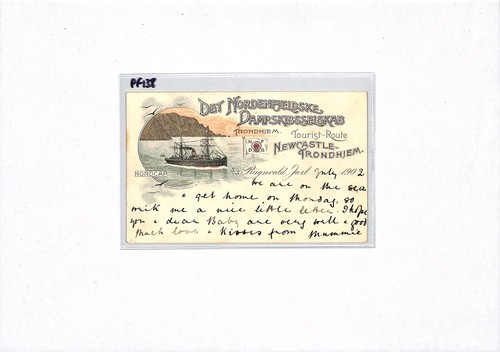 PF138
DET NORDENFJELDSKE
DAMPSKIBSSELSKAB
TRONDHJEM.
Tourist-Route
NEWCASTLE-
TRONDHJEM.
N F
D S
NORDCAP
S/S Ragnvald Jarl July 1902
We are on the sea
& get home on Monday, so
write me a nice little letter. I hope
you & dear Baby are very well & good
Much love & kisses from Mummie